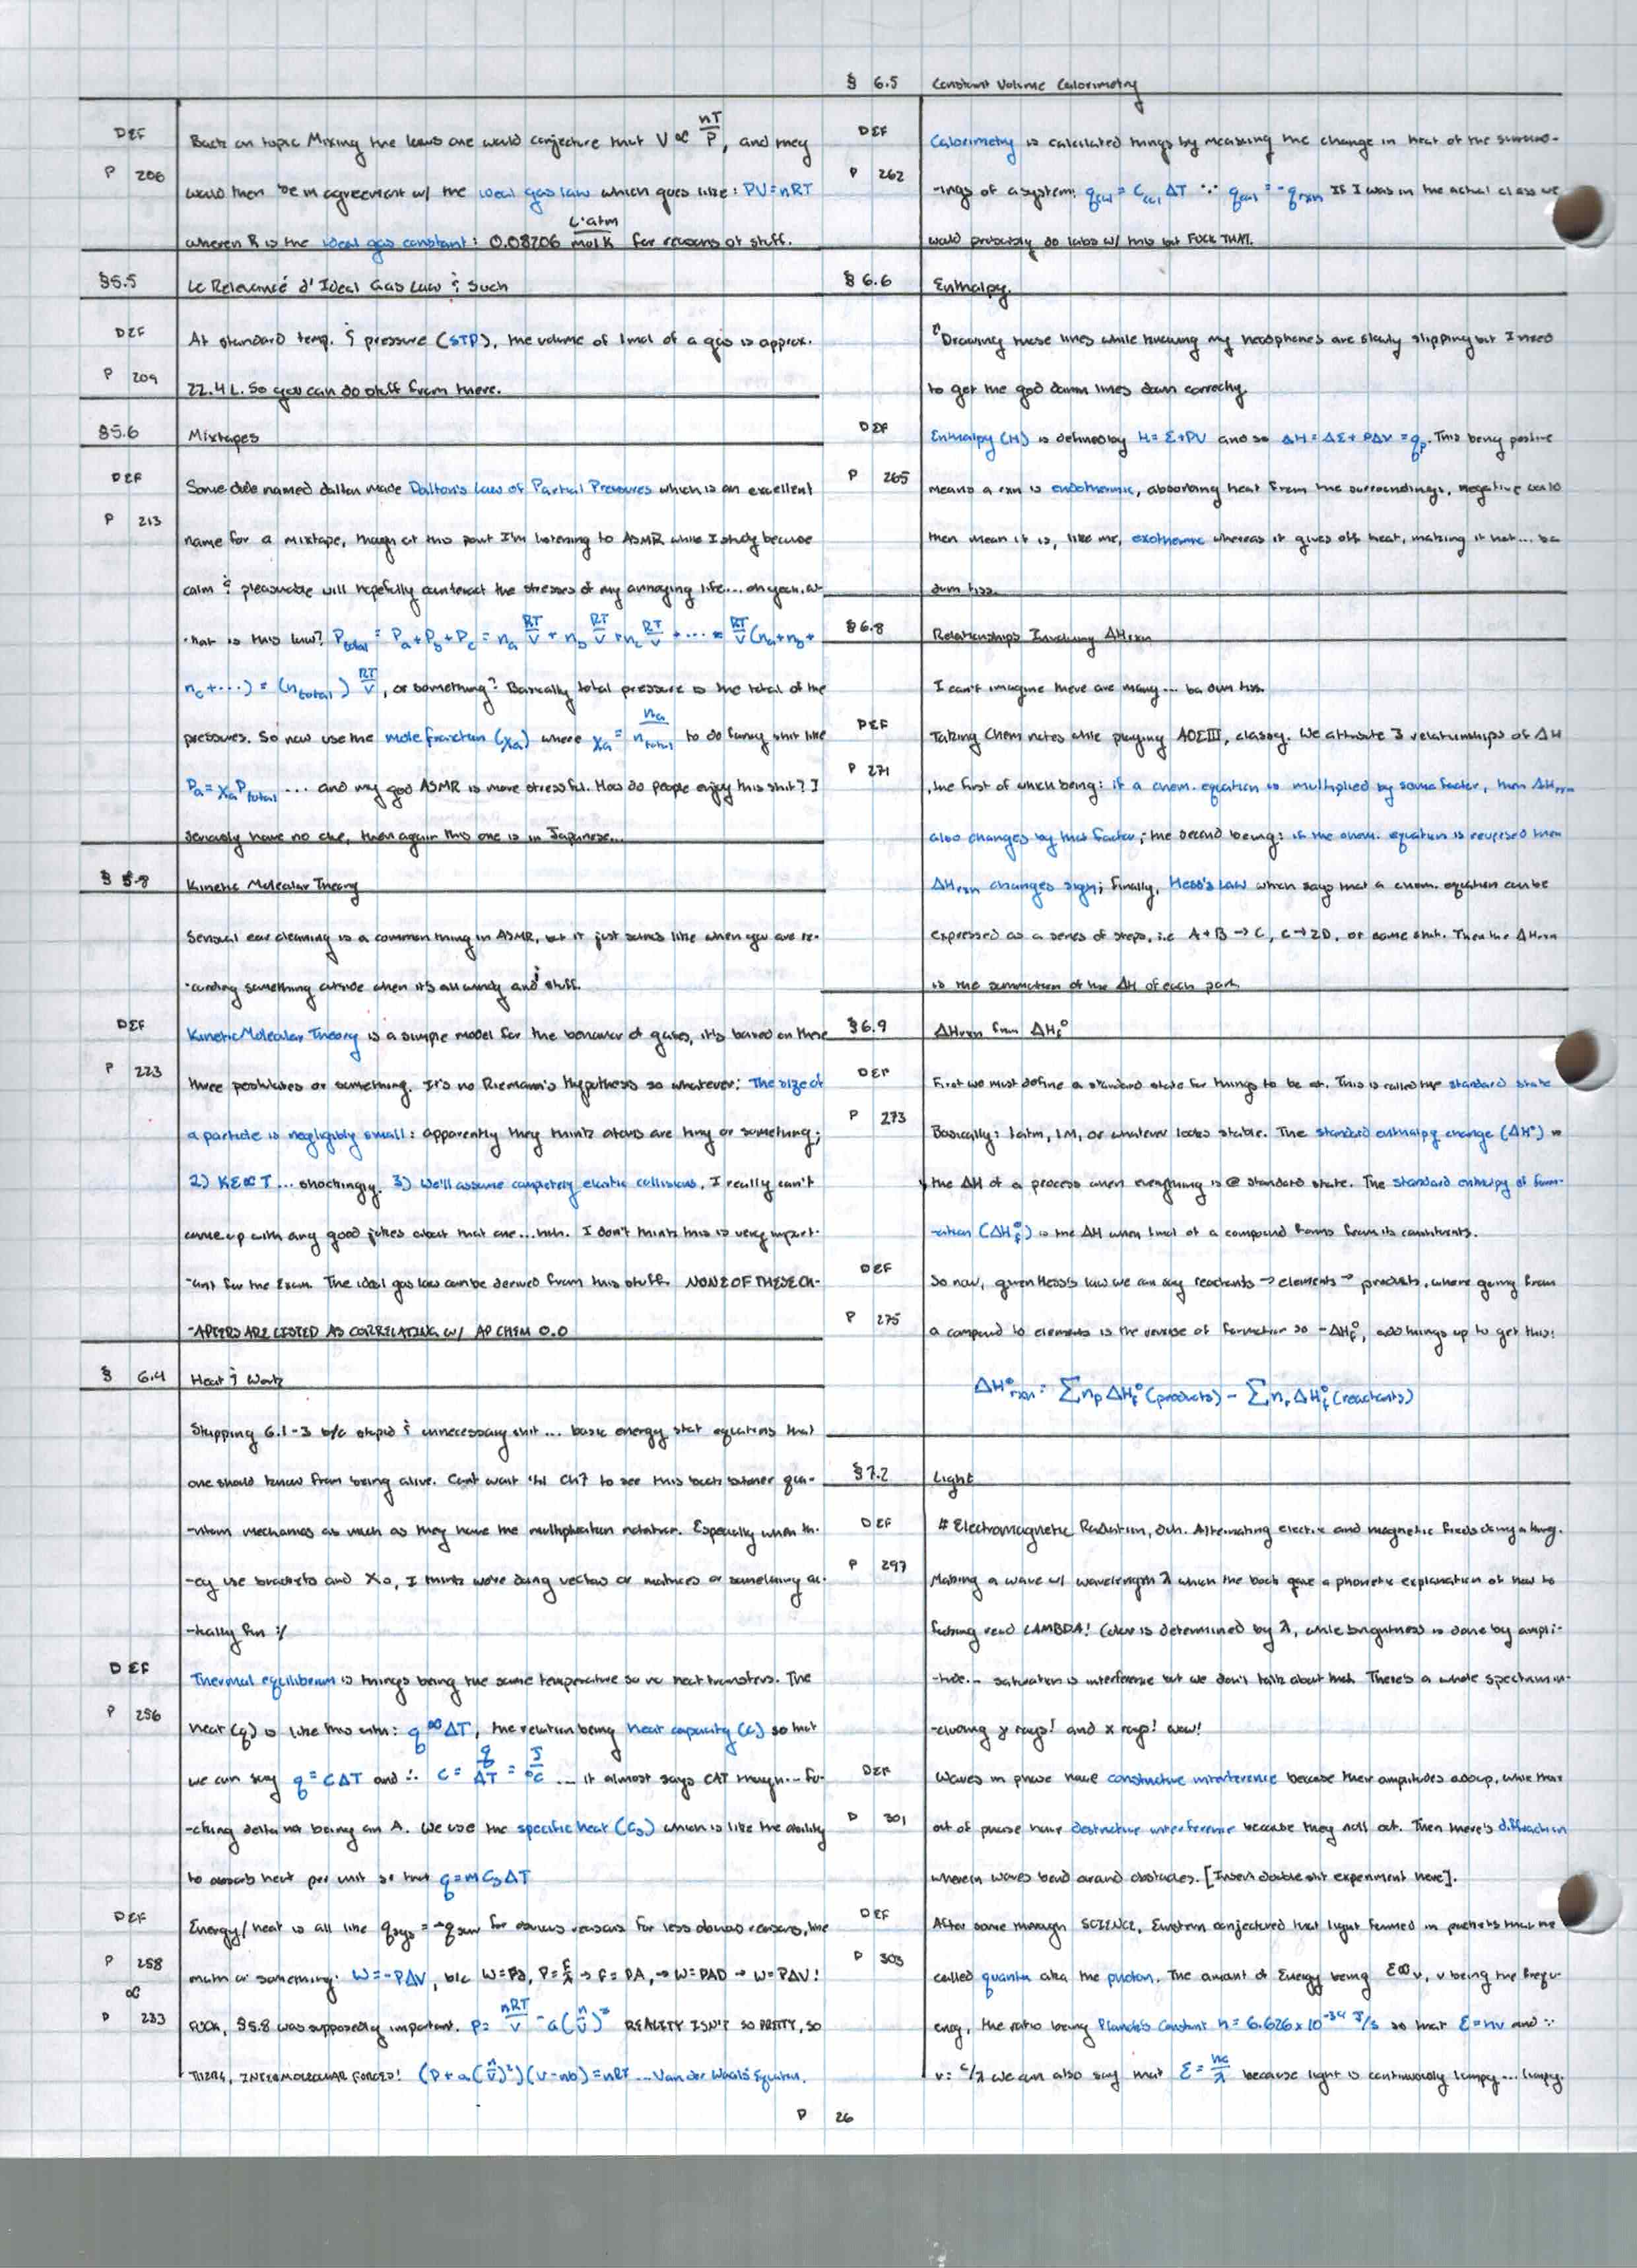 DEF
Back on topic Mixing the laws one would conjecture that V ∝ nT/P, and they
P 206
would then be in agreement w/ the ideal gas law which goes like: PV=nRT
wheren R is the ideal gas constant: 0.08206 L·atm/mol K for reasons of stuff.
§5.5 Le Relevancé d' Ideal Gas Law & Such
DEF
At standard temp. & pressure (STP), the volume of 1mol of a gas is approx.
P 209
22.4 L. So you can do stuff from there.
§5.6 Mixtapes
DEF
Some dude named dalton made Dalton's Law of Partial Pressures which is an excellent
P 213
name for a mixtape, though at this point I'm listening to ASMR while I study because
calm & pleasurable will hopefully counteract the stresses of my annoying life... oh yeah, w-
-hat is this law? Ptotal = Pa + Pb + Pc = na RT/V + nb RT/V + nc RT/V + ... = RT/V (na + nb +
nc + ...) = (ntotal) RT/V, or something? Basically total pressure is the total of the
pressures. So now use the mole fraction (χa) where χa = na/ntotal to do funny shit like
Pa = χa Ptotal ... and my god ASMR is more stressful. How do people enjoy this shit? I
seriously have no clue, then again this one is in Japanese...
§ 5.8 Kinetic Molecular Theory
Sensual ear cleaning is a common thing in ASMR, but it just sounds like when you are re-
-cording something outside when it's all windy and stuff.
DEF
Kinetic Molecular Theory is a simple model for the behavior of gases, it's based on these
P 223
three postulates or something. It's no Riemann's Hypothesis so whatever: The size of
a particle is negligibly small: apparently they think atoms are tiny or something;
2) KE ∝ T ... shockingly. 3) We'll assume completely elastic collisions, I really can't
come up with any good jokes about that one... huh. I don't think this is very import-
-ant for the Exam. The ideal gas law can be derived from this stuff. NONE OF THESE CH-
-APTERS ARE LISTED AS CORRELATING W/ AP CHEM 0.0
§ 6.4 Heat & Work
Skipping 6.1-3 b/c stupid & unnecessary shit... basic energy stat equations that
one should know from being alive. Can't wait 'til Ch7 to see this book butcher qua-
-ntum mechanics as much as they have the multiplication notation. Especially when th-
-ey use brackets and Xs, I think we're doing vectors or matrices or something ac-
-tually fun :/
DEF
Thermal equilibrium is things being the same temperature so no heat transfers. The
P 256
heat (q) is like this with: q ∝ ΔT, the relation being heat capacity (C) so that
we can say q = CΔT and ∴ C = q/ΔT = J/°C ... it almost says CAT though... fu-
-cking delta not being an A. We use the specific heat (Cs) which is like the ability
to absorb heat per unit so that q=m Cs ΔT
DEF
Energy/heat is all like qsys = -qsurr for obvious reasons for less obvious reasons, like
P 258
math or something: W=-PΔV, b/c W=FD, P=F/A → F=PA, → W=PAD → W=PΔV!
∝
P 233
FUCK, §5.8 was supposedly important. P= nRT/V - a(n/V)² REALITY ISN'T SO PRETTY, SO
THERE, INTERMOLECULAR FORCES! (P+a(n/V)²)(V-nb)=nRT ... Van der Waals Equation.
§ 6.5 Constant Volume Calorimetry
DEF
Calorimetry is calculated things by measuring the change in heat of the surround-
P 262
-ings of a system: qcal = Ccal ΔT ∵ qcal = -qrxn If I was in the actual class we
would probably do labs w/ this but FUCK THAT.
§ 6.6 Enthalpy.
"Drawing these lines while knowing my headphones are slowly slipping but I need
to get the god damn lines down correctly.
DEF
Enthalpy (H) is defined by H= E+PV and so ΔH = ΔE + PΔV = qp. This being positive
P 265
means a rxn is endothermic, absorbing heat from the surroundings, negative would
then mean it is, like me, exothermic whereas it gives off heat, making it hot... ba
dum tiss.
§6.8 Relationships Involving ΔHrxn
I can't imagine there are many... ba dum tiss.
DEF
Taking Chem notes while playing AOEIII, classy. We attribute 3 relationships of ΔH
P 271
, the first of which being: if a chem. equation is multiplied by some factor, then ΔHrxn
also changes by that factor; the second being: if the chem. equation is reversed then
ΔHrxn changes sign; finally, Hess's Law which says that a chem. equation can be
expressed as a series of steps, i.e A+B → C, C → 2D, or some shit. Then the ΔHrxn
is the summation of the ΔH of each part.
§6.9 ΔHrxn from ΔHf°
DEF
First we must define a standard state for things to be at. This is called the standard state
P 273
Basically: 1atm, 1M, or whatever looks stable. The standard enthalpy change (ΔH°) is
the ΔH of a process when everything is @ standard state. The standard enthalpy of form-
-ation (ΔHf°) is the ΔH when 1mol of a compound forms from its constituents.
DEF
So now, given Hess's law we can say reactants → elements → products, where going from
P 275
a compound to elements is the reverse of formation so -ΔHf°, add things up to get this:
ΔH°rxn = Σnp ΔHf°(products) - Σnr ΔHf°(reactants)
§7.2 Light
DEF
# Electromagnetic Radiation, duh. Alternating electric and magnetic fields doing a thing.
P 297
Making a wave w/ wavelength λ which the book gave a phonetic explanation of how to
fucking read LAMBDA! Color is determined by λ, while brightness is done by ampli-
-tude... saturation is interference but we don't talk about that. There's a whole spectrum in-
-cluding γ rays! and x rays! wow!
DEF
Waves in phase have constructive interference because their amplitudes add up, while those
P 301
out of phase have destructive interference because they null out. Then there's diffraction
wherein waves bend around obstacles. [Insert double slit experiment here].
DEF
After some thorough SCIENCE, Einstein conjectured that light formed in packets that he
P 303
called quanta aka the photon. The amount of Energy being E∝ν, ν being the frequ-
ency, the ratio being Planck's Constant h = 6.626 x 10⁻³⁴ J/s so that E=hν and ∵
ν = c/λ we can also say that E = hc/λ because light is continuously lumpy... lumpy.
P 26